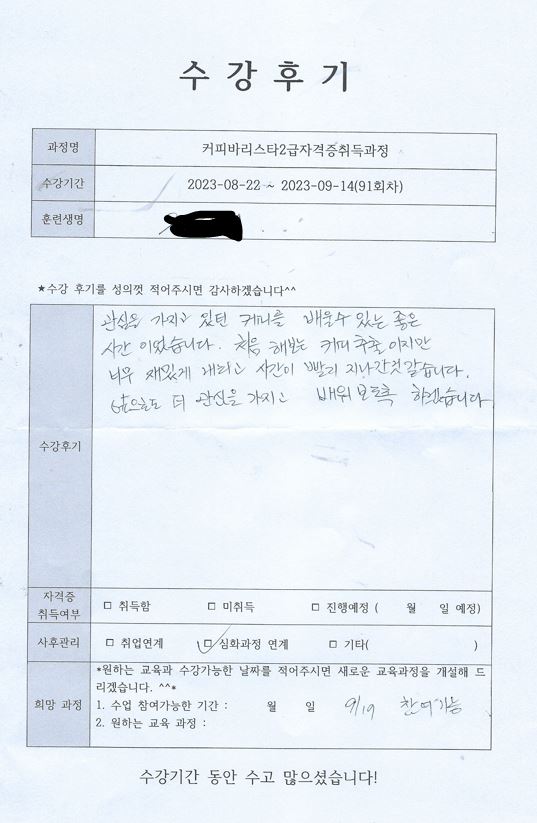 수강후기
과정명 커피바리스타2급자격증취득과정
수강기간 2023-08-22 ~ 2023-09-14(91회차)
훈련생명
★수강 후기를 성의껏 적어주시면 감사하겠습니다^^
수강후기
관심을 가지고 있던 커피를 배울수 있는 좋은
시간 이었습니다. 처음 해보는 커피 추출 이지만
너무 재밌게 내리고 시간이 빨리 지나간것 같습니다.
앞으로도 더 관심을 가지고 배워 보도록 하겠습니다
자격증
취득여부
□ 취득함 □ 미취득 □ 진행예정 ( 월 일 예정)
사후관리 □ 취업연계 □ 심화과정 연계 □ 기타( )
희망 과정
*원하는 교육과 수강가능한 날짜를 적어주시면 새로운 교육과정을 개설해 드
리겠습니다. ^^*
1. 수업 참여가능한 기간 : 월 일 9/19 참여가능
2. 원하는 교육 과정 :
수강기간 동안 수고 많으셨습니다!